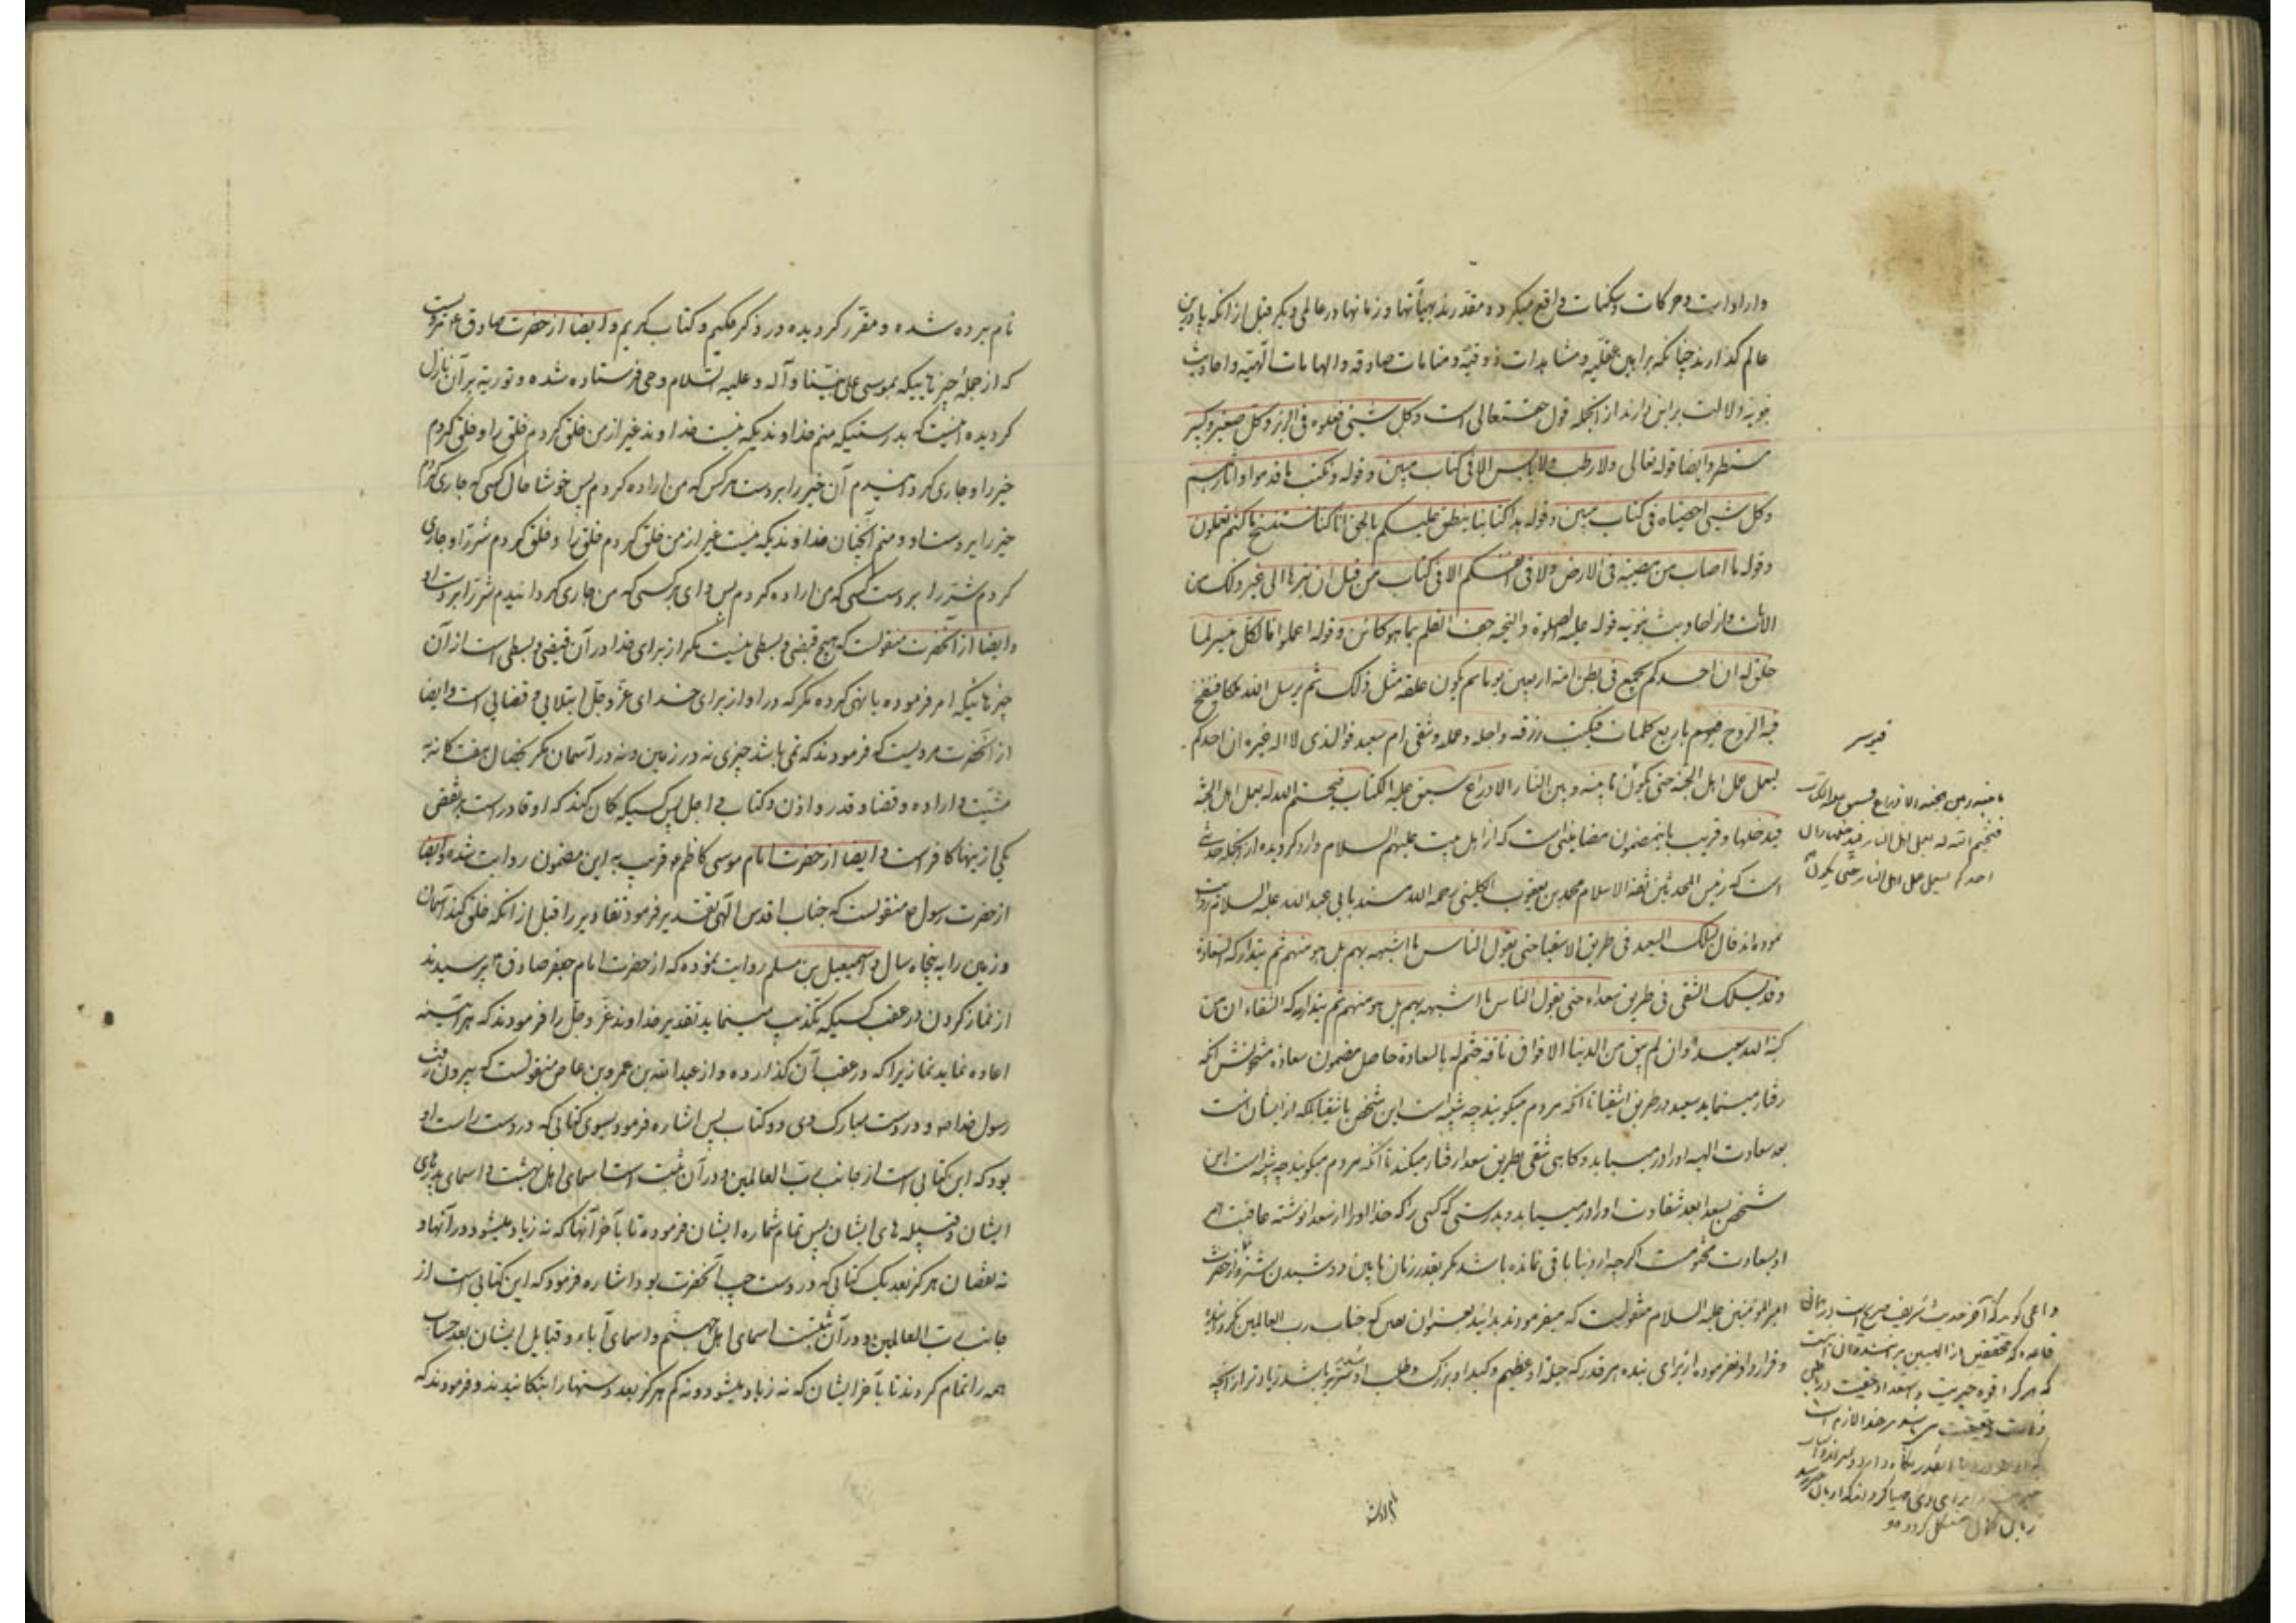 و ارادات و حرکات و سکنات واقع میگردد مقدرند بهیأتها و زمانها در عالمی دیگر قبل از آنکه پا درین
عالم گذارند چنانکه براهین عقلیه و مشاهدات ذوقیه و منامات صادقه و الهامات الهیه و احادیث
نبویه دلالت بر این دارند از انجمله قول حقتعالی است و کل شیئ فعلوه فی الزبر و کل صغیر و کبیر
مستطر و ایضا قوله تعالی ولا رطب ولا یابس الا فی کتاب مبین و قوله و نکتب ما قدموا و آثارهم
و کل شیئ احصیناه فی کتاب مبین و قوله هذا کتابنا ینطق علیکم بالحق انا کنا نستنسخ ما کنتم تعملون
و قوله ما اصاب من مصیبة فی الارض ولا فی انفسکم الا فی کتاب من قبل ان نبرءها الی غیر ذلک من
الآیات و از احادیث نبویه قوله علیه الصلوة و التحیه جف القلم بما هو کائن و قوله اعملوا فکل میسر لما
خلق له ان احدکم یجمع فی بطن امه اربعین یوما ثم یکون علقة مثل ذلک ثم یرسل الله ملکا فینفخ
فیه الروح فیؤمر باربع کلمات فیکتب رزقه و اجله و عمله و شقی ام سعید فوالذی لا اله غیره ان احدکم
لیعمل عمل اهل الجنة حتی یکون ما بینه و بین النار الا ذراع سبق علیه الکتاب فیختم الله له بعمل اهل الجنة
فیدخلها و قریب باین مضمون مضامینی است که از اهل بیت علیهم السلام وارد گردیده از انجمله حدیثی
است که رئیس المحدثین ثقة الاسلام محمد بن یعقوب الکلینی رحمه الله مسند بابی عبدالله علیه السلام روایت
نموده اند قال یسلک السعید فی طریق الاشقیا حتی یقول الناس ما اشبهه بهم بل هو منهم ثم یتدارکه السعادة
و قد یسلک الشقی فی طریق سعداء حتی یقول الناس ما اشبهه بهم بل هو منهم ثم یتدارکه الشقاء ان من
کتبه الله سعیدا و ان لم یبق من الدنیا الا فواق ناقة ختم له بالسعادة حاصل مضمون سعادة مشحونش آنکه
رفتار مینماید سعید در طریق اشقیا تا آنکه مردم میگویند چه شبیه است این شخص باشقیا بلکه از ایشان است
بعد سعادت الهیه او را در میابد و گاهی شقی بطریق سعدا رفتار میکند تا آنکه مردم میگویند چه شبیه است این
شخص بسعدا بعد شقاوت او را در میابد و بدرستی که کسی را که خدا او را از سعدا نوشته عاقبت امر
او بسعادت مختومست اگرچه از دنیا باقی نمانده باشد مگر بقدر زمان مابین دو دوشیدن شتر و از حضرت
امیر المومنین علیه السلام منقولست که میفرمودند بدانید بعنوان یقین که جناب رب العالمین نگردانیده
و قرار داد نفرموده از برای بنده هر قدر که حیله او عظیم و کید او بزرگ و طلب او شدید باشد زیادتر از آنچه
قیوسر
ما بینه و بین الجنة الا ذراع فسبق علیه الکتاب
فیختم الله له بعمل اهل النار فیدخلها و ان
احدکم لیعمل عمل اهل النار حتی یکون
داعی گوید که آخر حدیث شریف صریح است در
قاعده که محققین از الهیین بر آنند و آن اینست
که هر گرا قوه خیریت و استعداد حقیت در
نام برده شده و مقرر گردیده در ذکر حکیم و کتاب کریم و ایضا از حضرت صادق ع مرویست
که از جمله چیزهائیکه بموسی علی نبینا و آله و علیه السلام وحی فرستاده شده و توریة بر آن نازل
گردیده اینست که بدرستیکه منم خداوندیکه نیست خداوند غیر از من خلق کردم خلق را و خلق کردم
خیر را و جاری گردانیدم آن خیر را بر دست هر کس که من اراده کردم پس خوشا حال کسی که جاری کردم
خیر را بر دست او و منم آنچنان خداوندیکه نیست غیر از من خلق کردم خلق را و خلق کردم شر را و جاری
کردم شر را بر دست کسی که من اراده کردم پس وای بر کسی که من جاری گردانیدم شر را بر دست او
و ایضا از آنحضرت منقولست که هیچ قبضی و بسطی نیست مگر از برای خدا در آن قبضی و بسطی است از آن
چیزهائیکه امر فرموده یا نهی کرده مگر که در او از برای خدای عز و جل ابتلایی و قضایی است و ایضا
از آنحضرت مرویست که فرمودند که نمی باشد چیزی نه در زمین و نه در آسمان مگر بخصال هفت گانه
مشیت و اراده و قضا و قدر و اذن و کتاب و اجل پس کسیکه گمان کند که او قادر است بر نقض
یکی از ینها کافر است و ایضا از حضرت امام موسی کاظم ع قریب به این مضمون روایت شده و ایضا
از حضرت رسول ص منقولست که جناب اقدس الهی تقدیر فرمود تقادیر را قبل از آنکه خلق کند آسمان
و زمین را به پنجاه سال و اسمعیل بن مسلم روایت نموده که از حضرت امام جعفر صادق ع پرسیدند
از نماز کردن در عقب کسیکه تکذیب مینماید تقدیر خداوند عز و جل را فرمودند که هر آینه
اعاده نماید نمازیرا که در عقب آن گذارده و از عبدالله بن عمرو بن عاص منقولست که بیرون رفت
رسول خدا ص و در دست مبارک وی دو کتاب پس اشاره فرمود بسوی کتابی که در دست راست او
بود که این کتابی است از جانب رب العالمین و در آن ثبت است اسمای اهل بهشت و اسمای پدرهای
ایشان و قبیله های ایشان پس تمام شماره ایشان فرموده تا بآخر آنها که نه زیاد میشود در آنها و
نه نقصان هرگز بعد یک کتابی که در دست چپ آنحضرت بود اشاره فرمود که این کتابی است از
جانب رب العالمین و در آن ثبتست اسمای اهل جهنم و اسمای آباء و قبایل ایشان بعد حساب
همه را تمام کردند تا بآخر ایشان که نه زیاد میشود و نه کم هرگز بعد دستها را بتکانیدند و فرمودند که